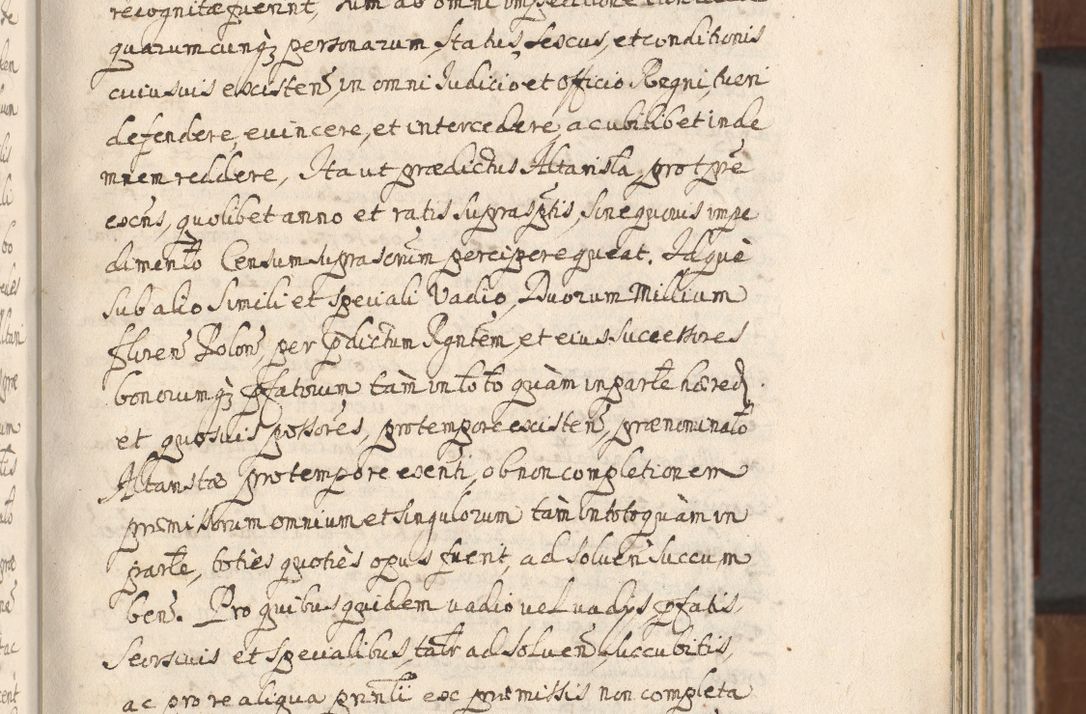 recognitæ fuerint, tum ab omni impeditione
quarumcunq₃ personarum, status, sexus, et conditionis
cuiusuis existen̄, in omni Iudicio et officio Regni, tueri
defendere, euincere, et intercedere, ac ubilibet inde
mnem reddere, Ita ut prædictus Altarista, pro t̄pre
exn̄s, quolibet anno et ratis suprasp̄tis, sine quouis impe
dimento Censum suprascrip̄m percipere queat. Idque
sub alio simili et speciali Vadio, Duorum Millium
floren̄ Polon̄, per p̄dictum Rgnt̄em, et eius successores
bonorumq₃ p̄fatorum tàm in toto quàm in parte hæred.
et quosuis possores, pro tempore existen̄, prænominato
Altaristæ pro tempore exn̄ti, ob non completionem
præmissorum omnium et singulorum tàm in toto quàm in
parte, toties quoties opus fuerit, ad soluen̄ succum
ben̄. Pro quibus quidem uadio uel uadijs p̄fatis,
seorsiuis et specialibus, talr ad soluen̄ succubitis,
ac pro re aliqua prn̄ti ex præmissis non completa